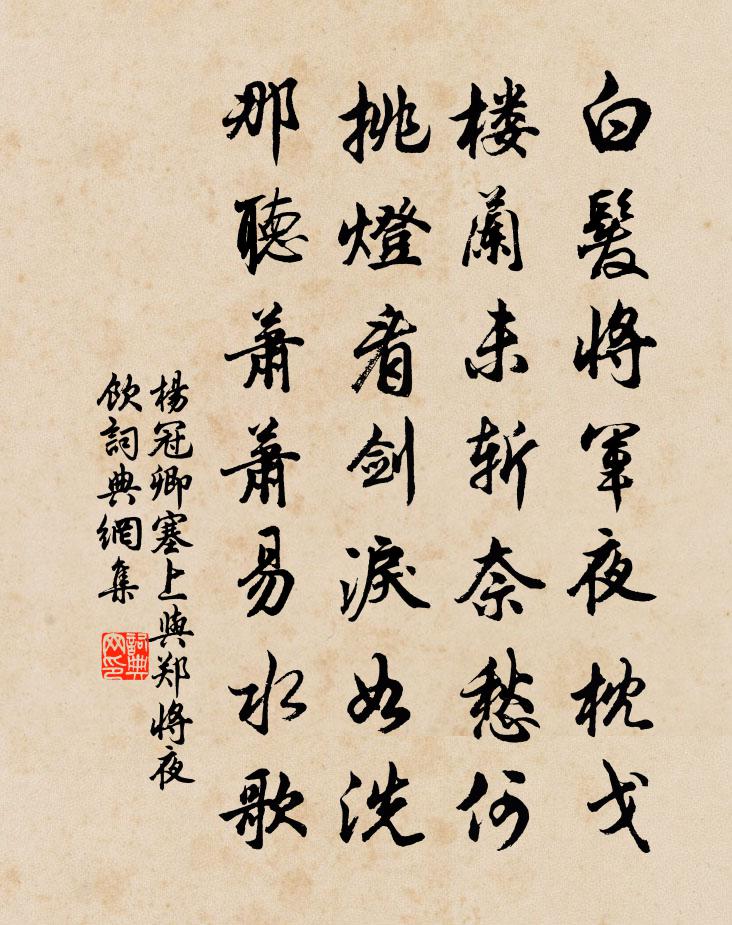 白髮将軍夜枕戈
楼蘭未斬奈愁何
挑燈看剑淚如洗
那聽蕭蕭易水歌
楊冠卿塞上與郑将夜
飲詞典網集
詞典网印